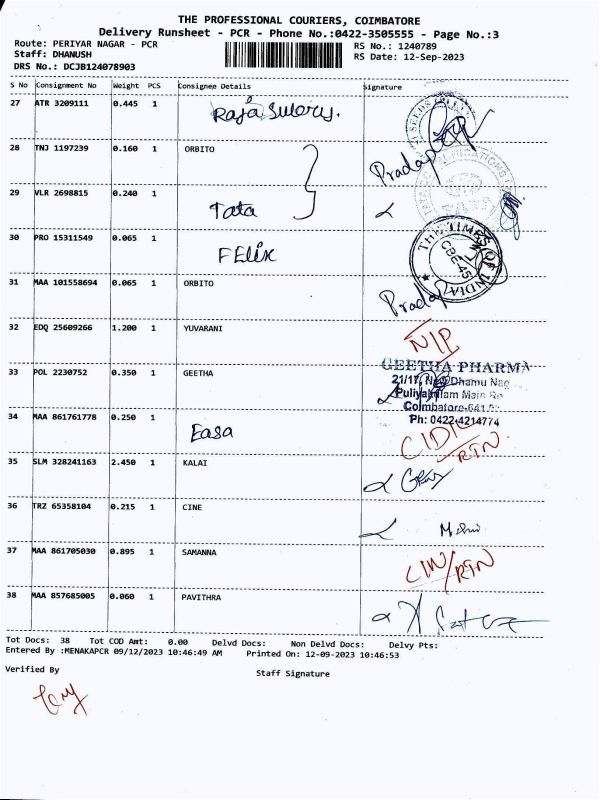 THE PROFESSIONAL COURIERS, COIMBATORE
Delivery Runsheet - PCR - Phone No.:0422-3505555 - Page No.:3
Route: PERIYAR NAGAR - PCR
RS No.: 1240789
Staff: DHANUSH
RS Date: 12-Sep-2023
DRS No.: DCJB124078903
S No Consignment No Weight PCS Consignee Details Signature
27 ATR 3209111 0.445 1
28 TNJ 1197239 0.160 1 ORBITO
29 VLR 2698815 0.240 1 Tata
30 PRO 15311549 0.065 1 FEliX
THE TIMES OF INDIA
CBE-45
31 MAA 101558694 0.065 1 ORBITO
32 EDQ 25609266 1.200 1 YUVARANI
GEETHA PHARMA
33 POL 2230752 0.350 1 GEETHA
21/17, Dhamu
Main
Coimbatore
34 MAA 861761778 0.250 1 Easa
Ph: 0422-4214774
RTN
35 SLM 328241163 2.450 1 KALAI
36 TRZ 65358104 0.215 1 CINE
37 MAA 861705030 0.895 1 SAMANNA
RTN
38 MAA 857685005 0.060 1 PAVITHRA
Tot Docs: 38 Tot COD Amt: 0.00 Delvd Docs: Non Delvd Docs: Delvy Pts:
Entered By :MENAKAPCR 09/12/2023 10:46:49 AM Printed On: 12-09-2023 10:46:53
Verified By
Staff Signature